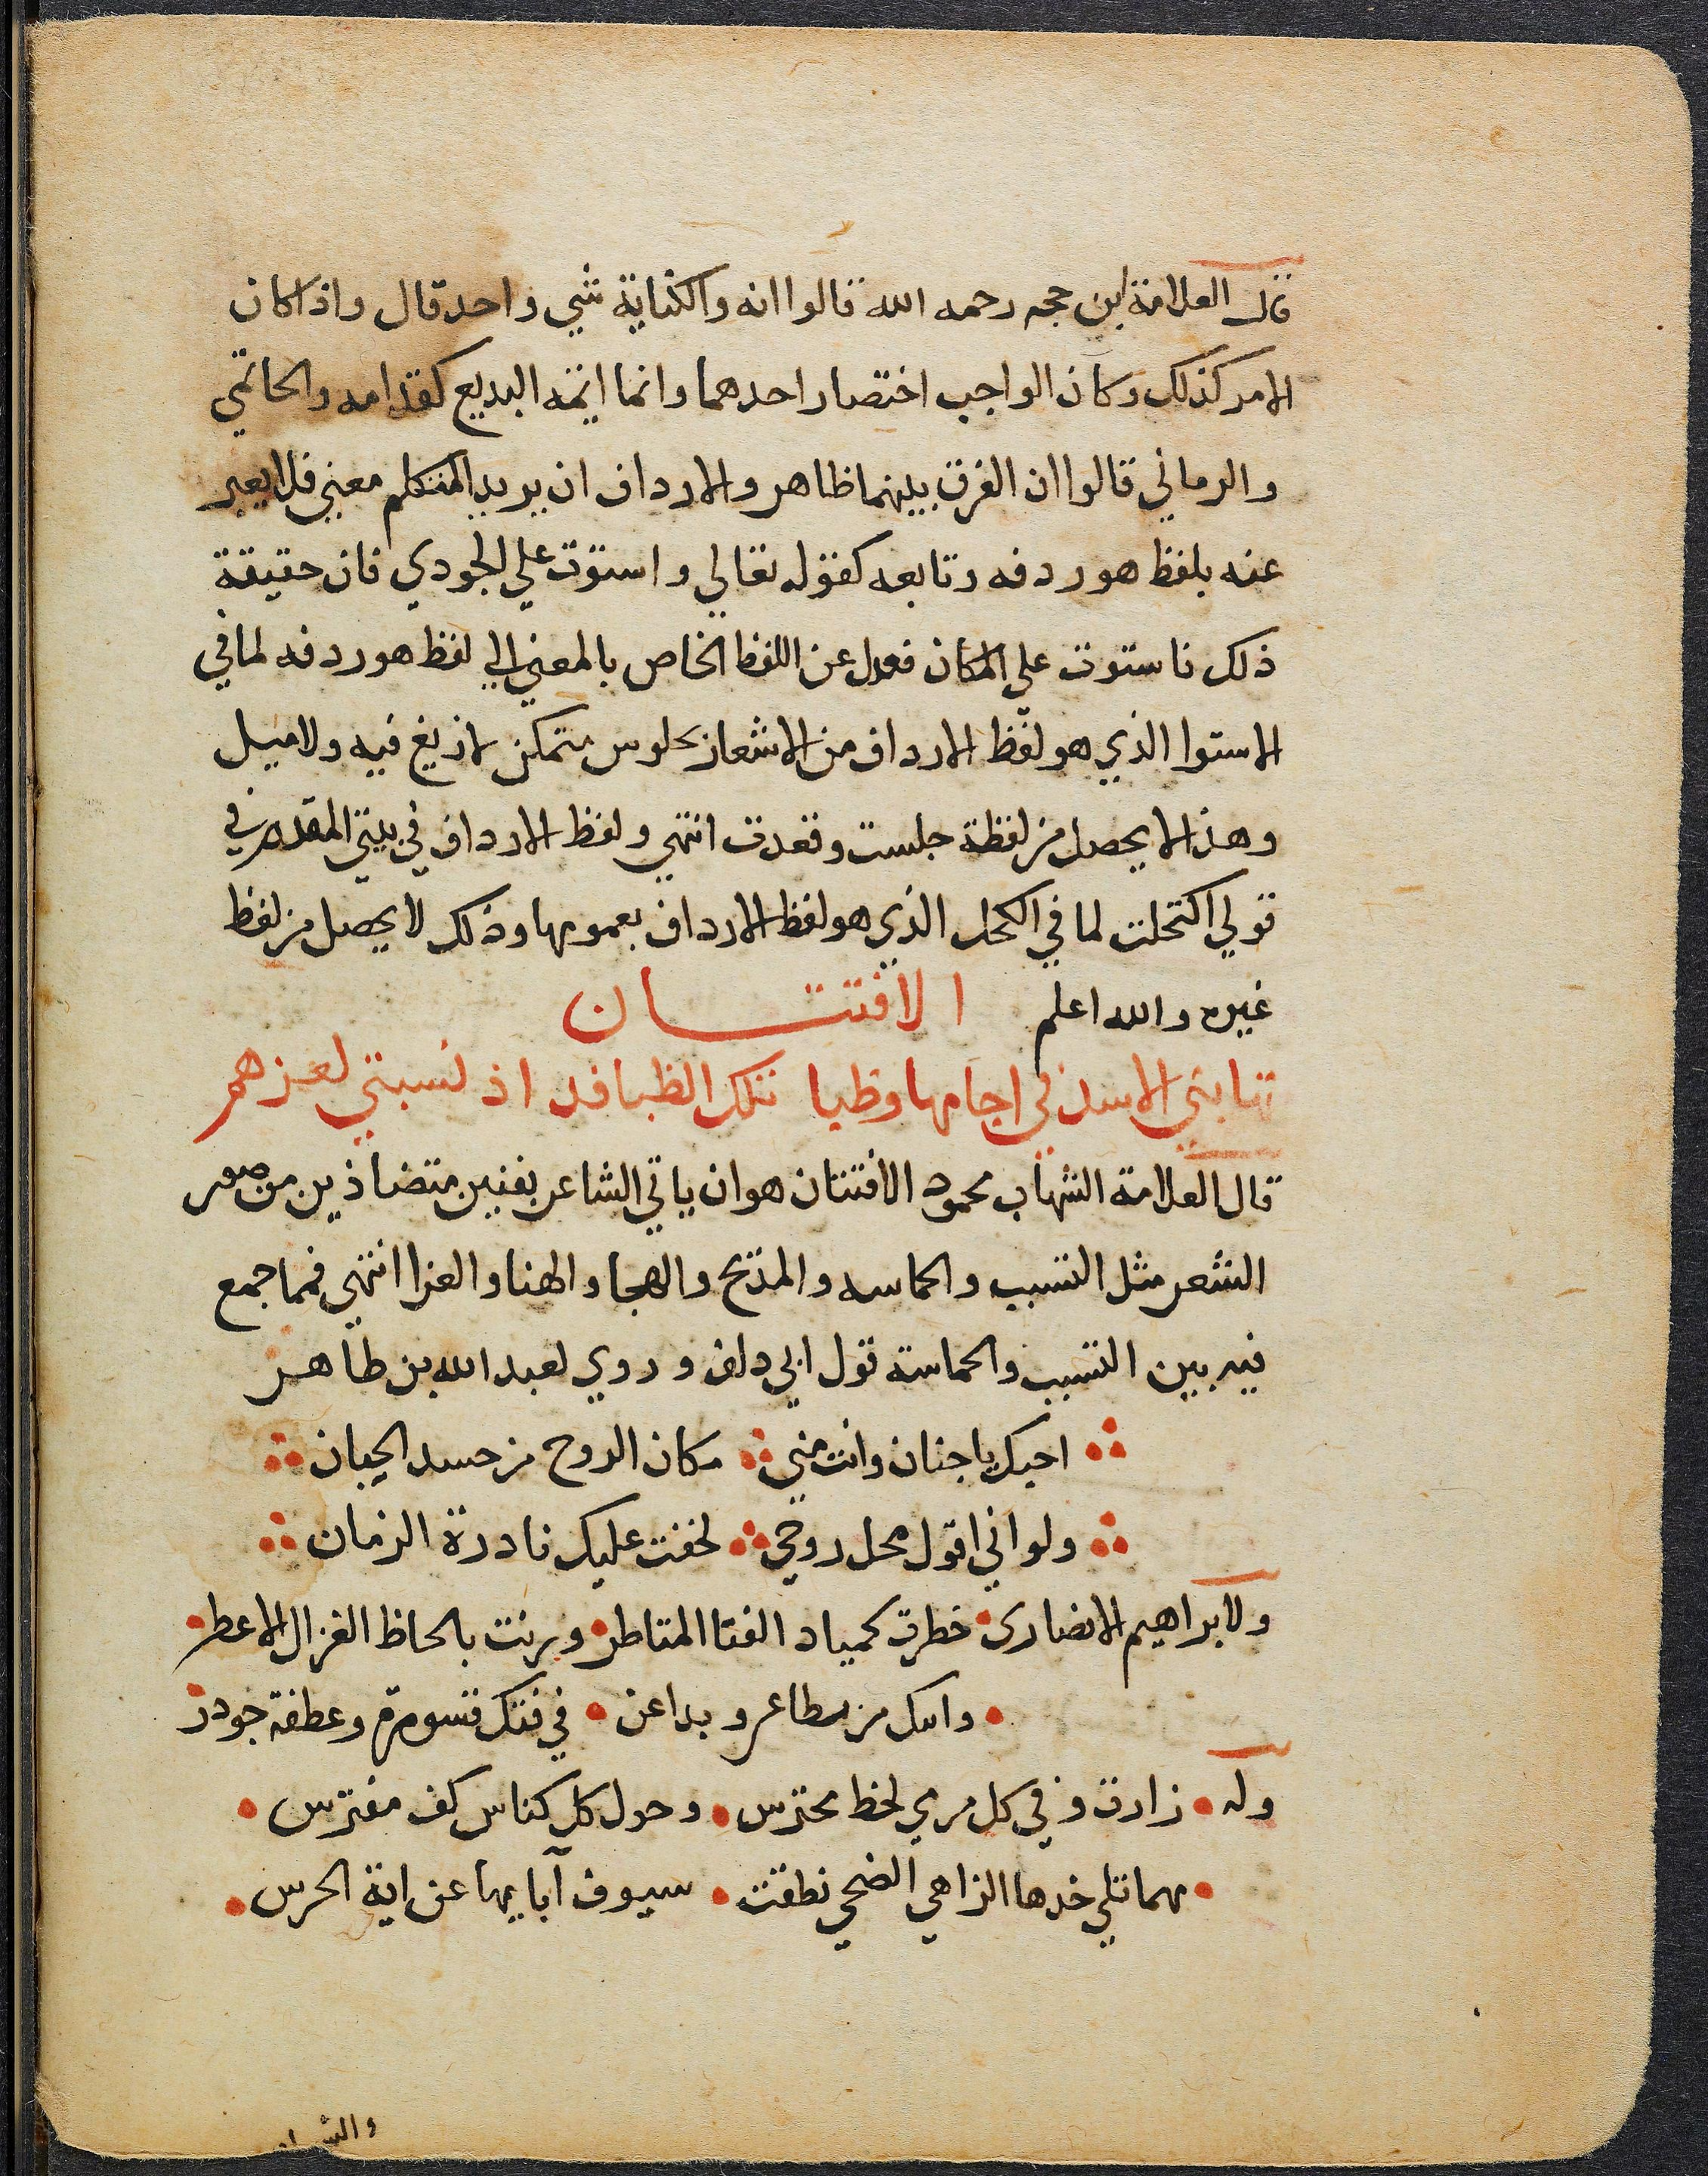 قال العلامة ابن حجه رحمه الله قالوا انه والكناية شي واحد قال واذا كان
الامر كذلك وكان الواجب اختصار احدهما وانما ايمه البديع كقدامه والحاتمي
والرماني قالوا ان الفرق بينهما ظاهر والارداف ان يريد المتكلم معني فلا يعبر
عنه بلفظ هو ردفه وتابعه كقوله تعالي واستوت علي الجودي فان حقيقة
ذلك فاستوت علي المكان فعدل عن اللفظ الخاص بالمعني الي لفظ هو ردفه لما في
الاستوا الذي هو لفظ الارداف من الاشعار بجلوس متمكن لا زيغ فيه ولا ميل
وهذا لا يحصل من لفظة جلست وقعدت انتهي ولفظ الارداف في بيتي المقدم في
قولي اكتحلت لما في الكحل الذي هو لفظ الارداف بعمومها وذلك لا يحصل من لفظ
غيره والله اعلم الافتتان
تنابني الاسد في اجامها وظبا تلك الظبا قد اذ نسبتي لعزهم
قال العلامة الشهاب محمود الافتتان هو ان ياتي الشاعر بفنين متضاذين من صور
الشعر مثل النسيب والحماسه والمديح والهجا والهنا والعزا انتهي فمما جمع
فيه بين النسيب والحماسة قول ابي دلف وروي لعبد الله بن طاهر
احبك يا جنان وانت مني مكان الروح من جسد الجبان
ولو اني اقول محل روحي لخفت عليك نادرة الزمان
ولابراهيم الانصاري خطرت كمياد القنا المتاطر ورنت بالحاظ الغزال الاعطر
في فتك قسورة وعطفة جودر
وله زارت وفي كل مرمي لحظ محترس وحول كل كناس كف مفترس
مهما تلي خدها الزاهي الضحي نطقت سيوف آبايها عن اية الحرس